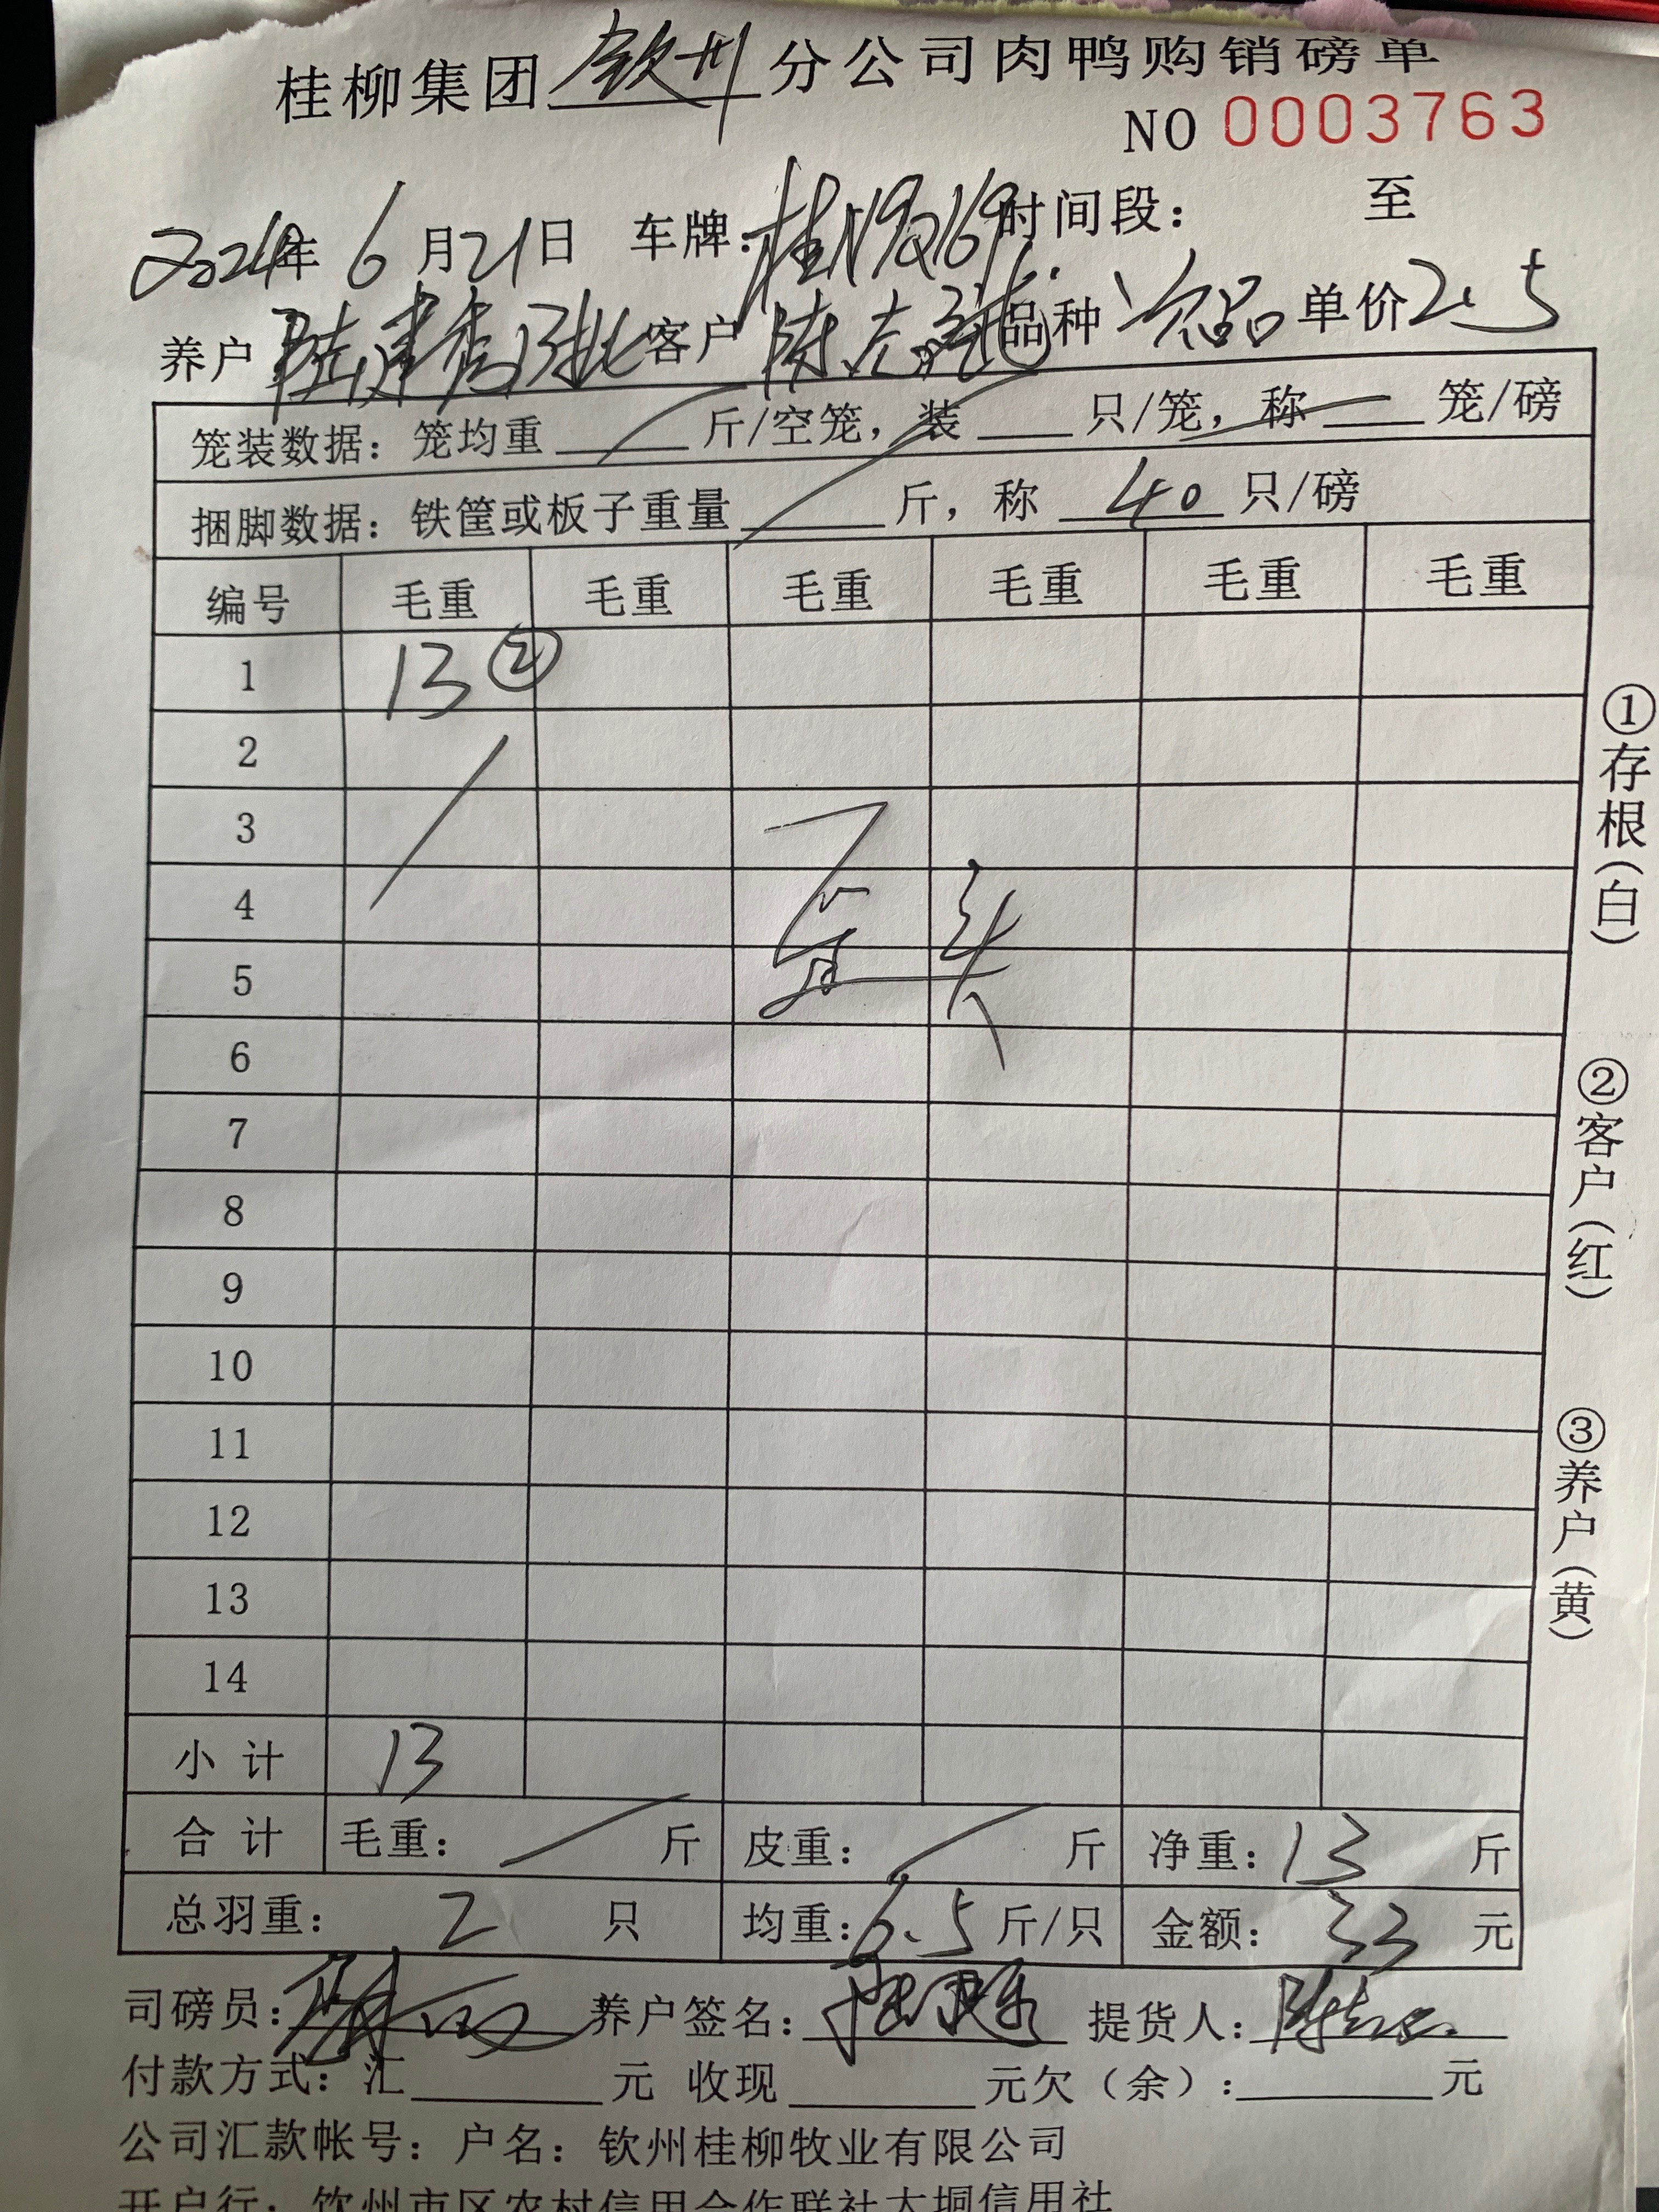 桂柳集团 钦州 分公司肉鸭购销磅单
NO 0003763
2024年 6月21日 车牌：桂N9Q169 时间段： 至
养户 陆建秀 客户 陈志 品种 次品 单价 2.5
笼装数据：笼均重 斤/空笼，装 只/笼，称 笼/磅
捆脚数据：铁筐或板子重量 斤，称 40 只/磅
编号 毛重 毛重 毛重 毛重 毛重 毛重
1 13 ②
2
3
4
5
6
7
8
9
10
11
12
13
14
小计 13
合计 毛重： 斤 皮重： 斤 净重：13 斤
总羽重： 2 只 均重：6.5 斤/只 金额： 33 元
司磅员： 养户签名： 提货人：
付款方式：汇 元 收现 元欠（余）： 元
公司汇款帐号：户名：钦州桂柳牧业有限公司
开户行：钦州市区农村信用合作联社大垌信用社
①存根（白）
②客户（红）
③养户（黄）